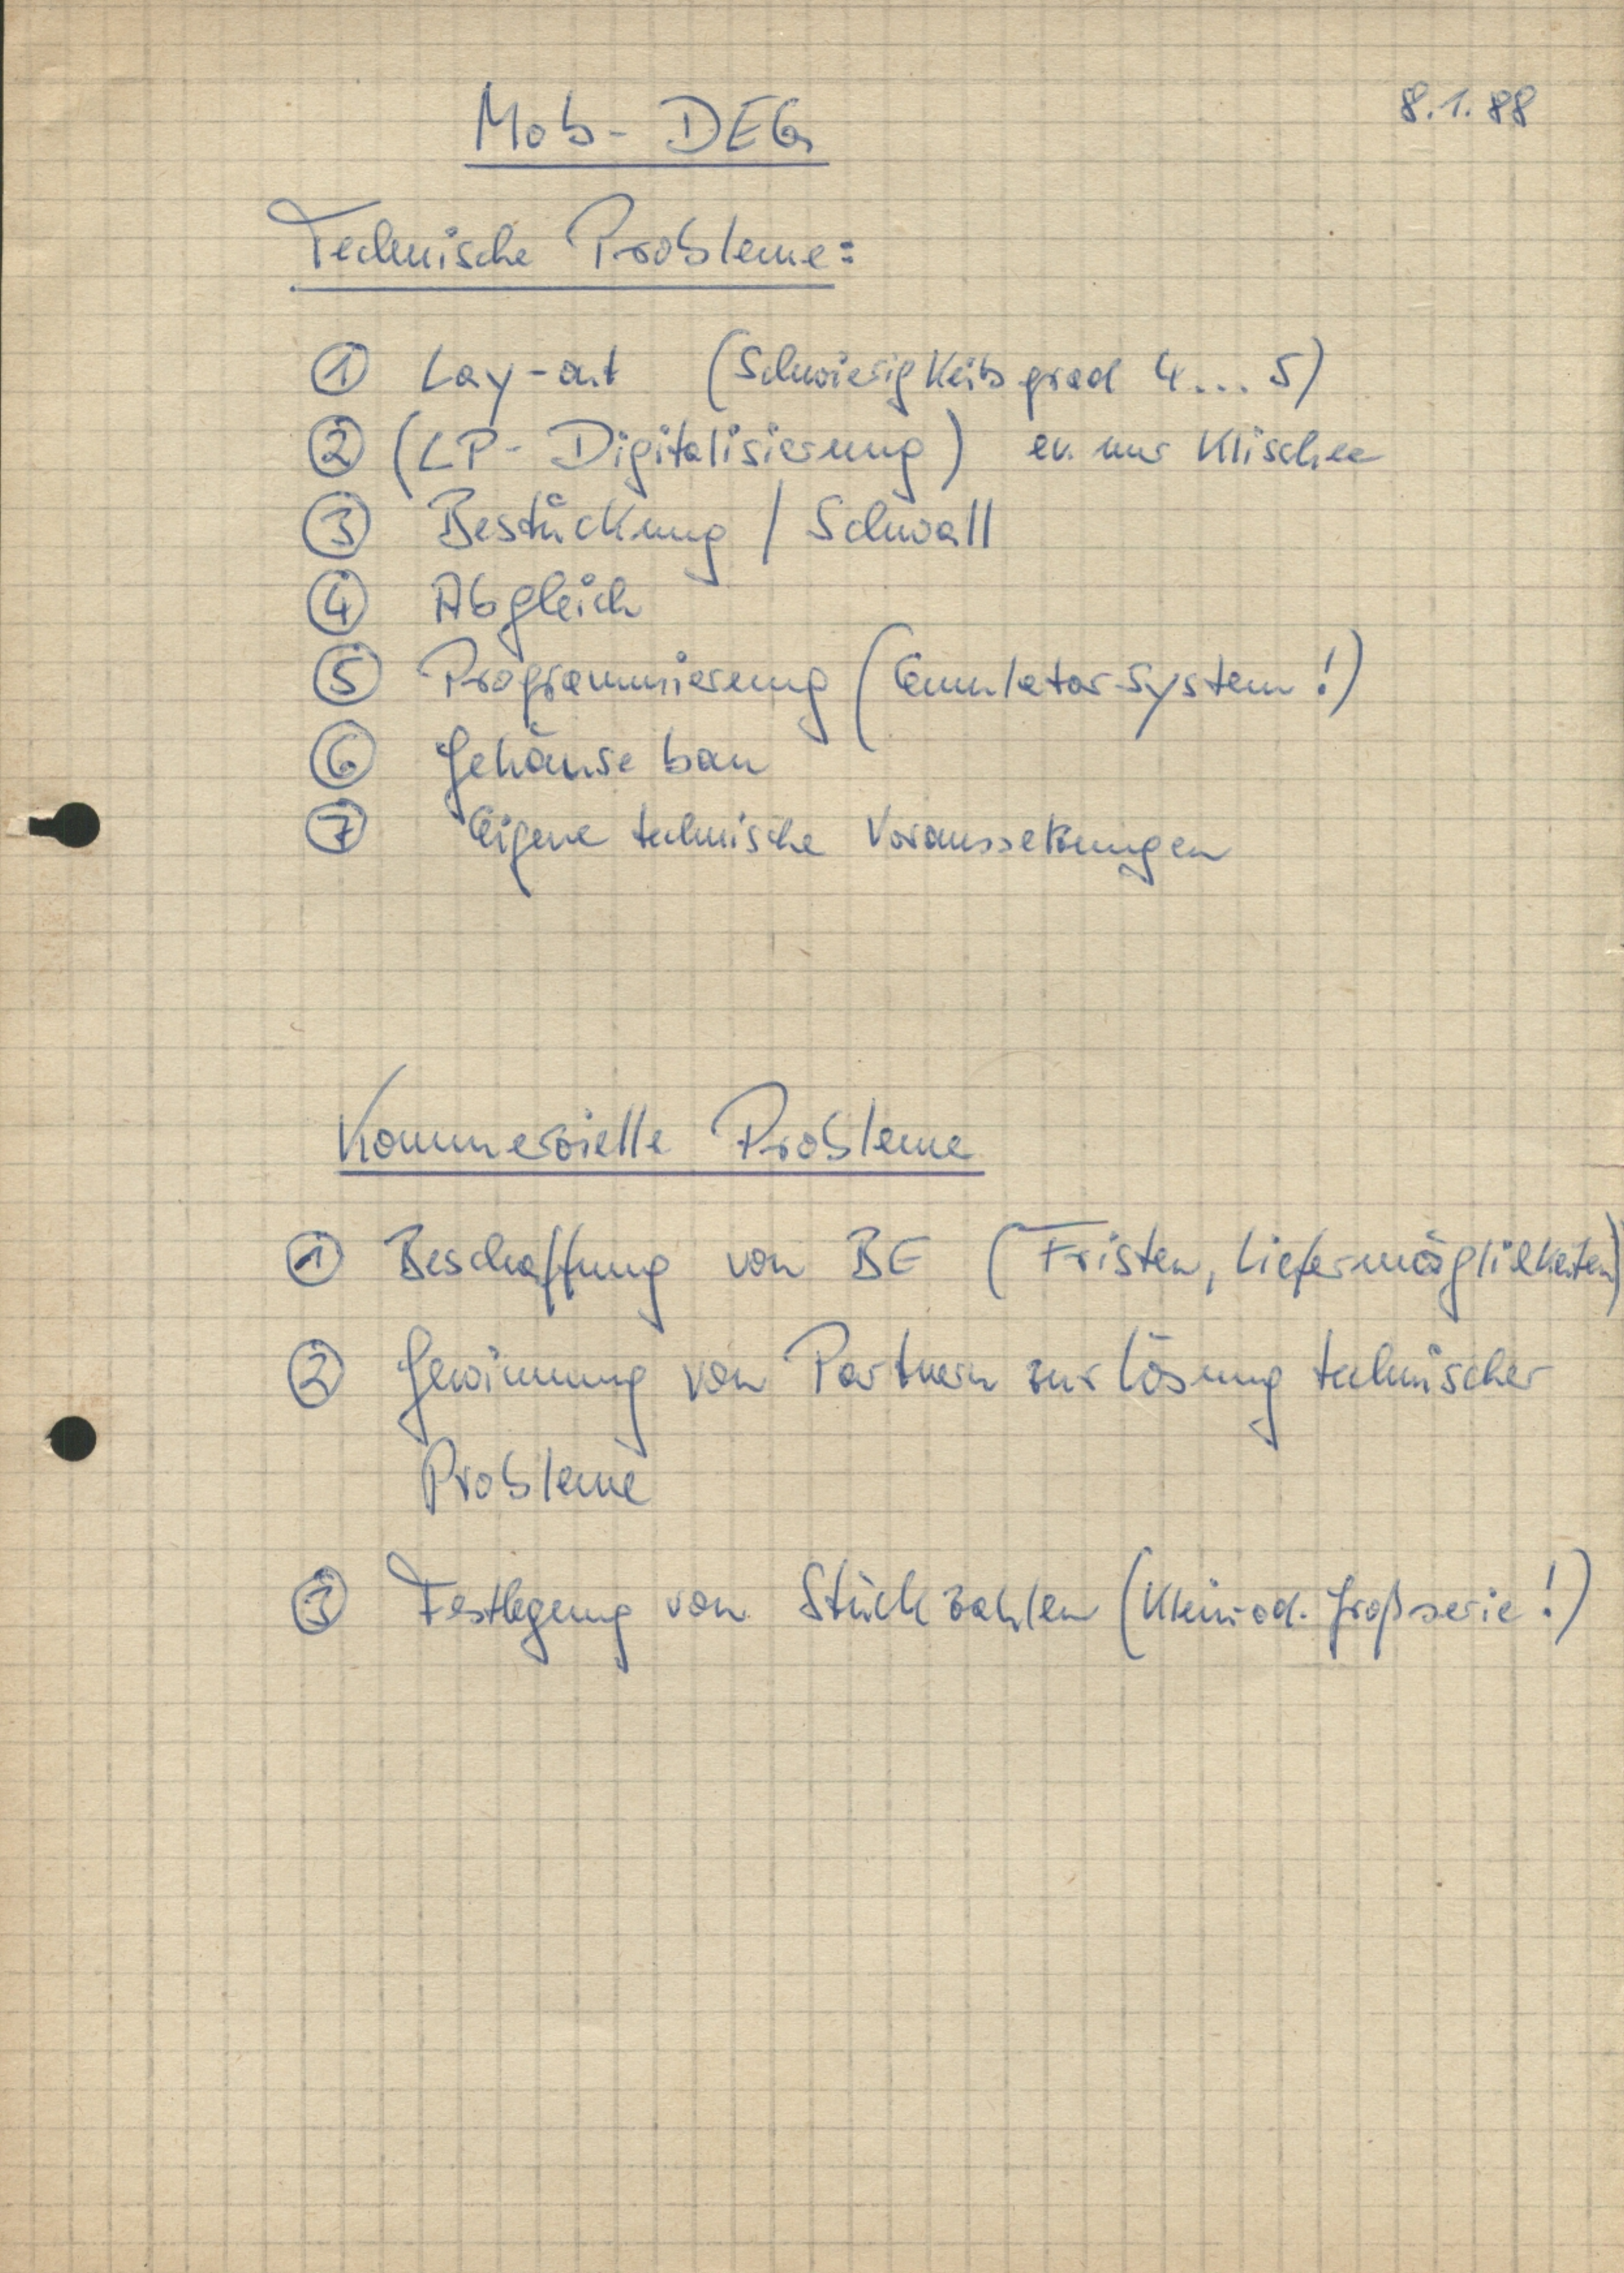 8.1.88
Mob-DEG
Technische Probleme:
① Lay-out (Schwierigkeitsgrad 4...5)
② (LP-Digitalisierung) ev. nur Klischee
③ Bestückung / Schwall
④ Abgleich
⑤ Programmierung (Emulatorsystem!)
⑥ Gehäusebau
⑦ Eigene technische Voraussetzungen
Kommerzielle Probleme
① Beschaffung von BE (Fristen, Liefermöglichkeiten)
② Gewinnung von Partnern zur Lösung technischer
Probleme
③ Festlegung von Stückzahlen (Klein od. Großserie!)